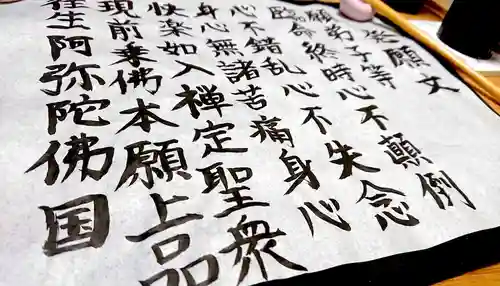 発願文
願弟子等
臨命終時心不顛倒
心不錯乱心不失念
身心無諸苦痛身心
快楽如入禅定聖衆
現前乗佛本願上品
往生阿弥陀佛国